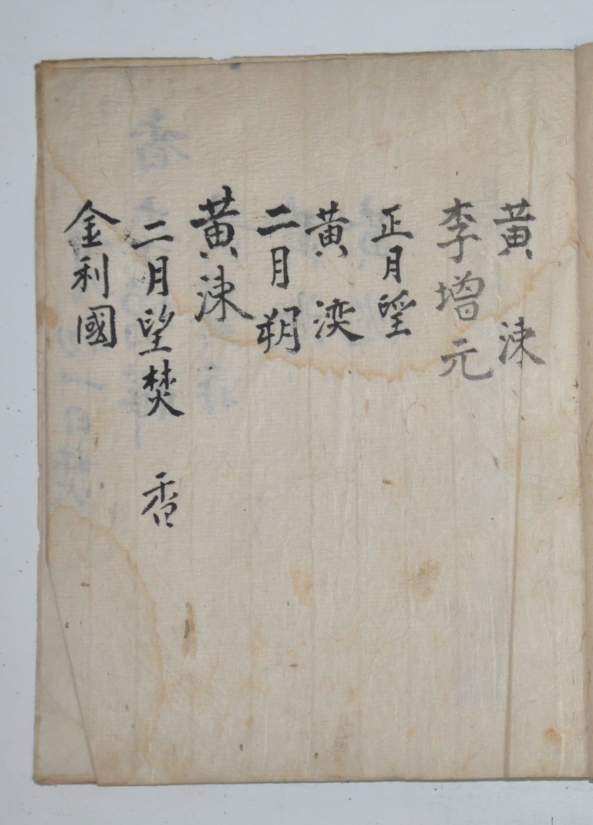 黃 洡
李增元
正月望
黃 湙
二月朔
黃洡
二月望焚 香
金利國